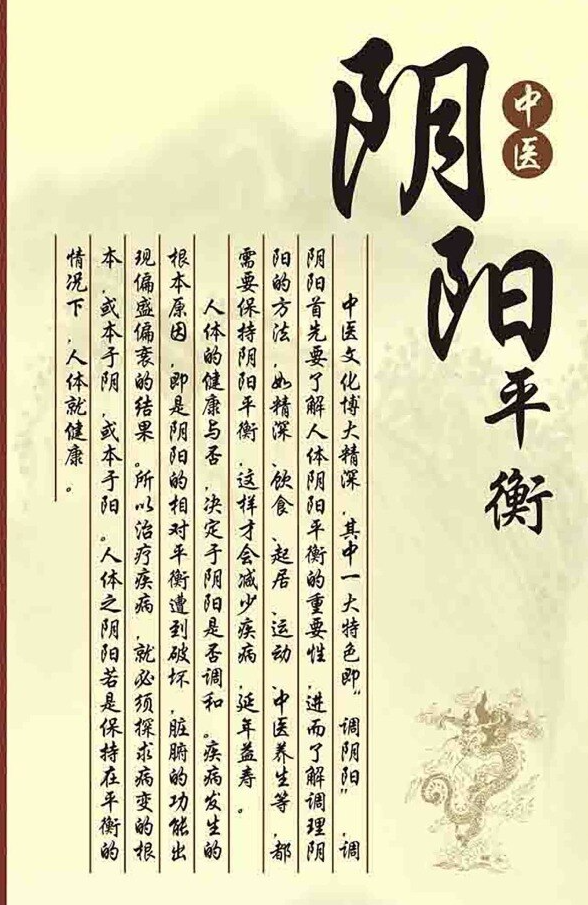 中医
阴阳平衡
中医文化博大精深，其中一大特色即“调阴阳”，调
阴阳首先要了解人体阴阳平衡的重要性，进而了解调理阴
阳的方法，如精深、饮食、起居、运动、中医养生等，都
需要保持阴阳平衡，这样才会减少疾病，延年益寿。
人体的健康与否，决定于阴阳是否调和。疾病发生的
根本原因，即是阴阳的相对平衡遭到破坏，脏腑的功能出
现偏盛偏衰的结果。所以治疗疾病，就必须探求病变的根
本，或本于阴，或本于阳。人体之阴阳若是保持在平衡的
情况下，人体就健康。